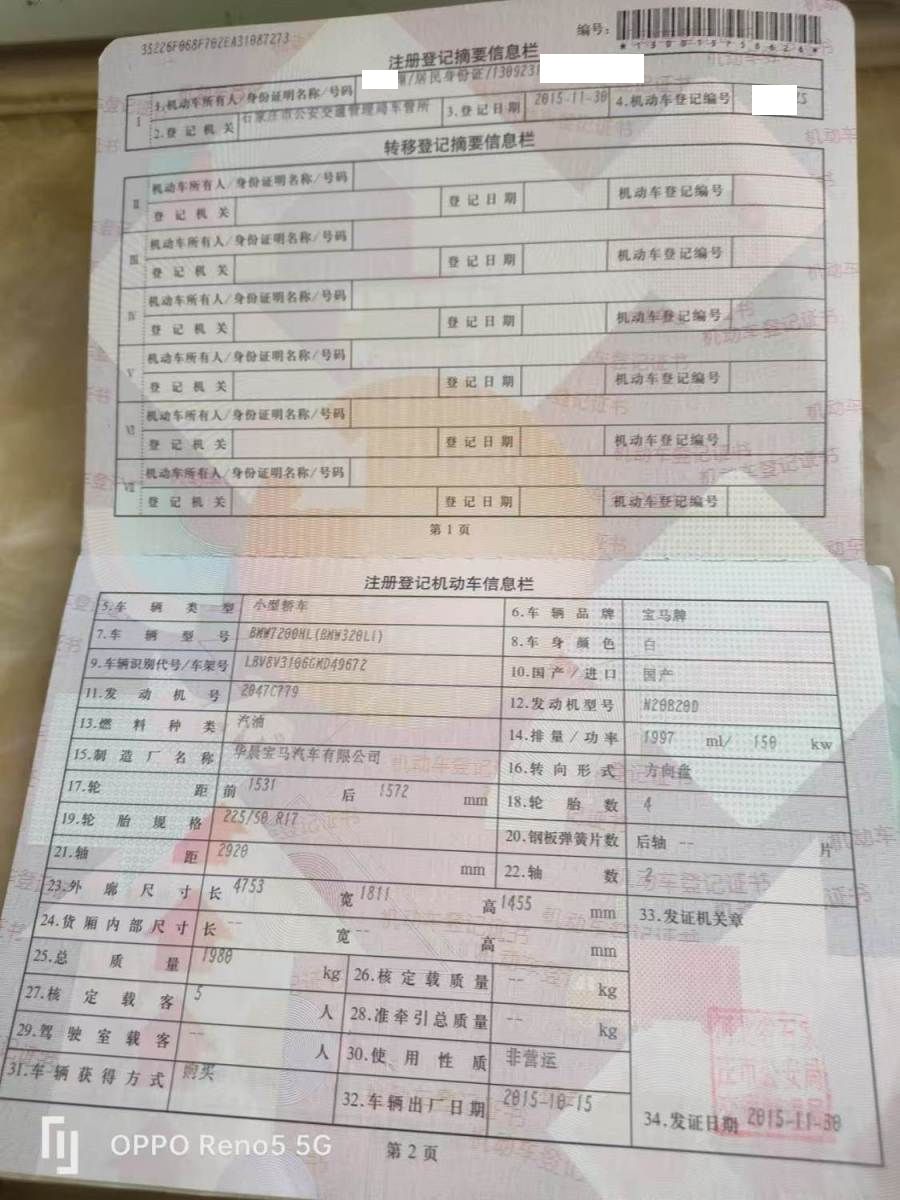 35226F068F702EA31087273
编号:
*130015758626*
注册登记摘要信息栏
I 1.机动车所有人/身份证明名称/号码 /居民身份证/1309231
2.登记机关 石家庄市公安交通管理局车管所 3.登记日期 2015-11-30 4.机动车登记编号
转移登记摘要信息栏
II 机动车所有人/身份证明名称/号码
登记机关 登记日期 机动车登记编号
III 机动车所有人/身份证明名称/号码
登记机关 登记日期 机动车登记编号
IV 机动车所有人/身份证明名称/号码
登记机关 登记日期 机动车登记编号
V 机动车所有人/身份证明名称/号码
登记机关 登记日期 机动车登记编号
VI 机动车所有人/身份证明名称/号码
登记机关 登记日期 机动车登记编号
VII 机动车所有人/身份证明名称/号码
登记机关 登记日期 机动车登记编号
第1页
注册登记机动车信息栏
5.车辆类型 小型轿车 6.车辆品牌 宝马牌
7.车辆型号 BMW7200HL(BMW320LI) 8.车身颜色 白
9.车辆识别代号/车架号 LBV8V3106GMD49672 10.国产/进口 国产
11.发动机号 2047C779 12.发动机型号 N20B20D
13.燃料种类 汽油 14.排量/功率 1997 ml/ 150 kw
15.制造厂名称 华晨宝马汽车有限公司 16.转向形式 方向盘
17.轮距 前 1531 后 1572 mm 18.轮胎数 4
19.轮胎规格 225/50 R17 20.钢板弹簧片数 后轴 -- 片
21.轴距 2920 mm 22.轴数 2
23.外廓尺寸 长 4753 宽 1811 高 1455 mm 33.发证机关章
24.货厢内部尺寸 长 -- 宽 -- 高 mm
25.总质量 1980 kg 26.核定载质量 -- kg
27.核定载客 5 人 28.准牵引总质量 -- kg
29.驾驶室载客 -- 人 30.使用性质 非营运
31.车辆获得方式 购买 32.车辆出厂日期 2015-10-15 34.发证日期 2015-11-30
第2页
OPPO Reno5 5G